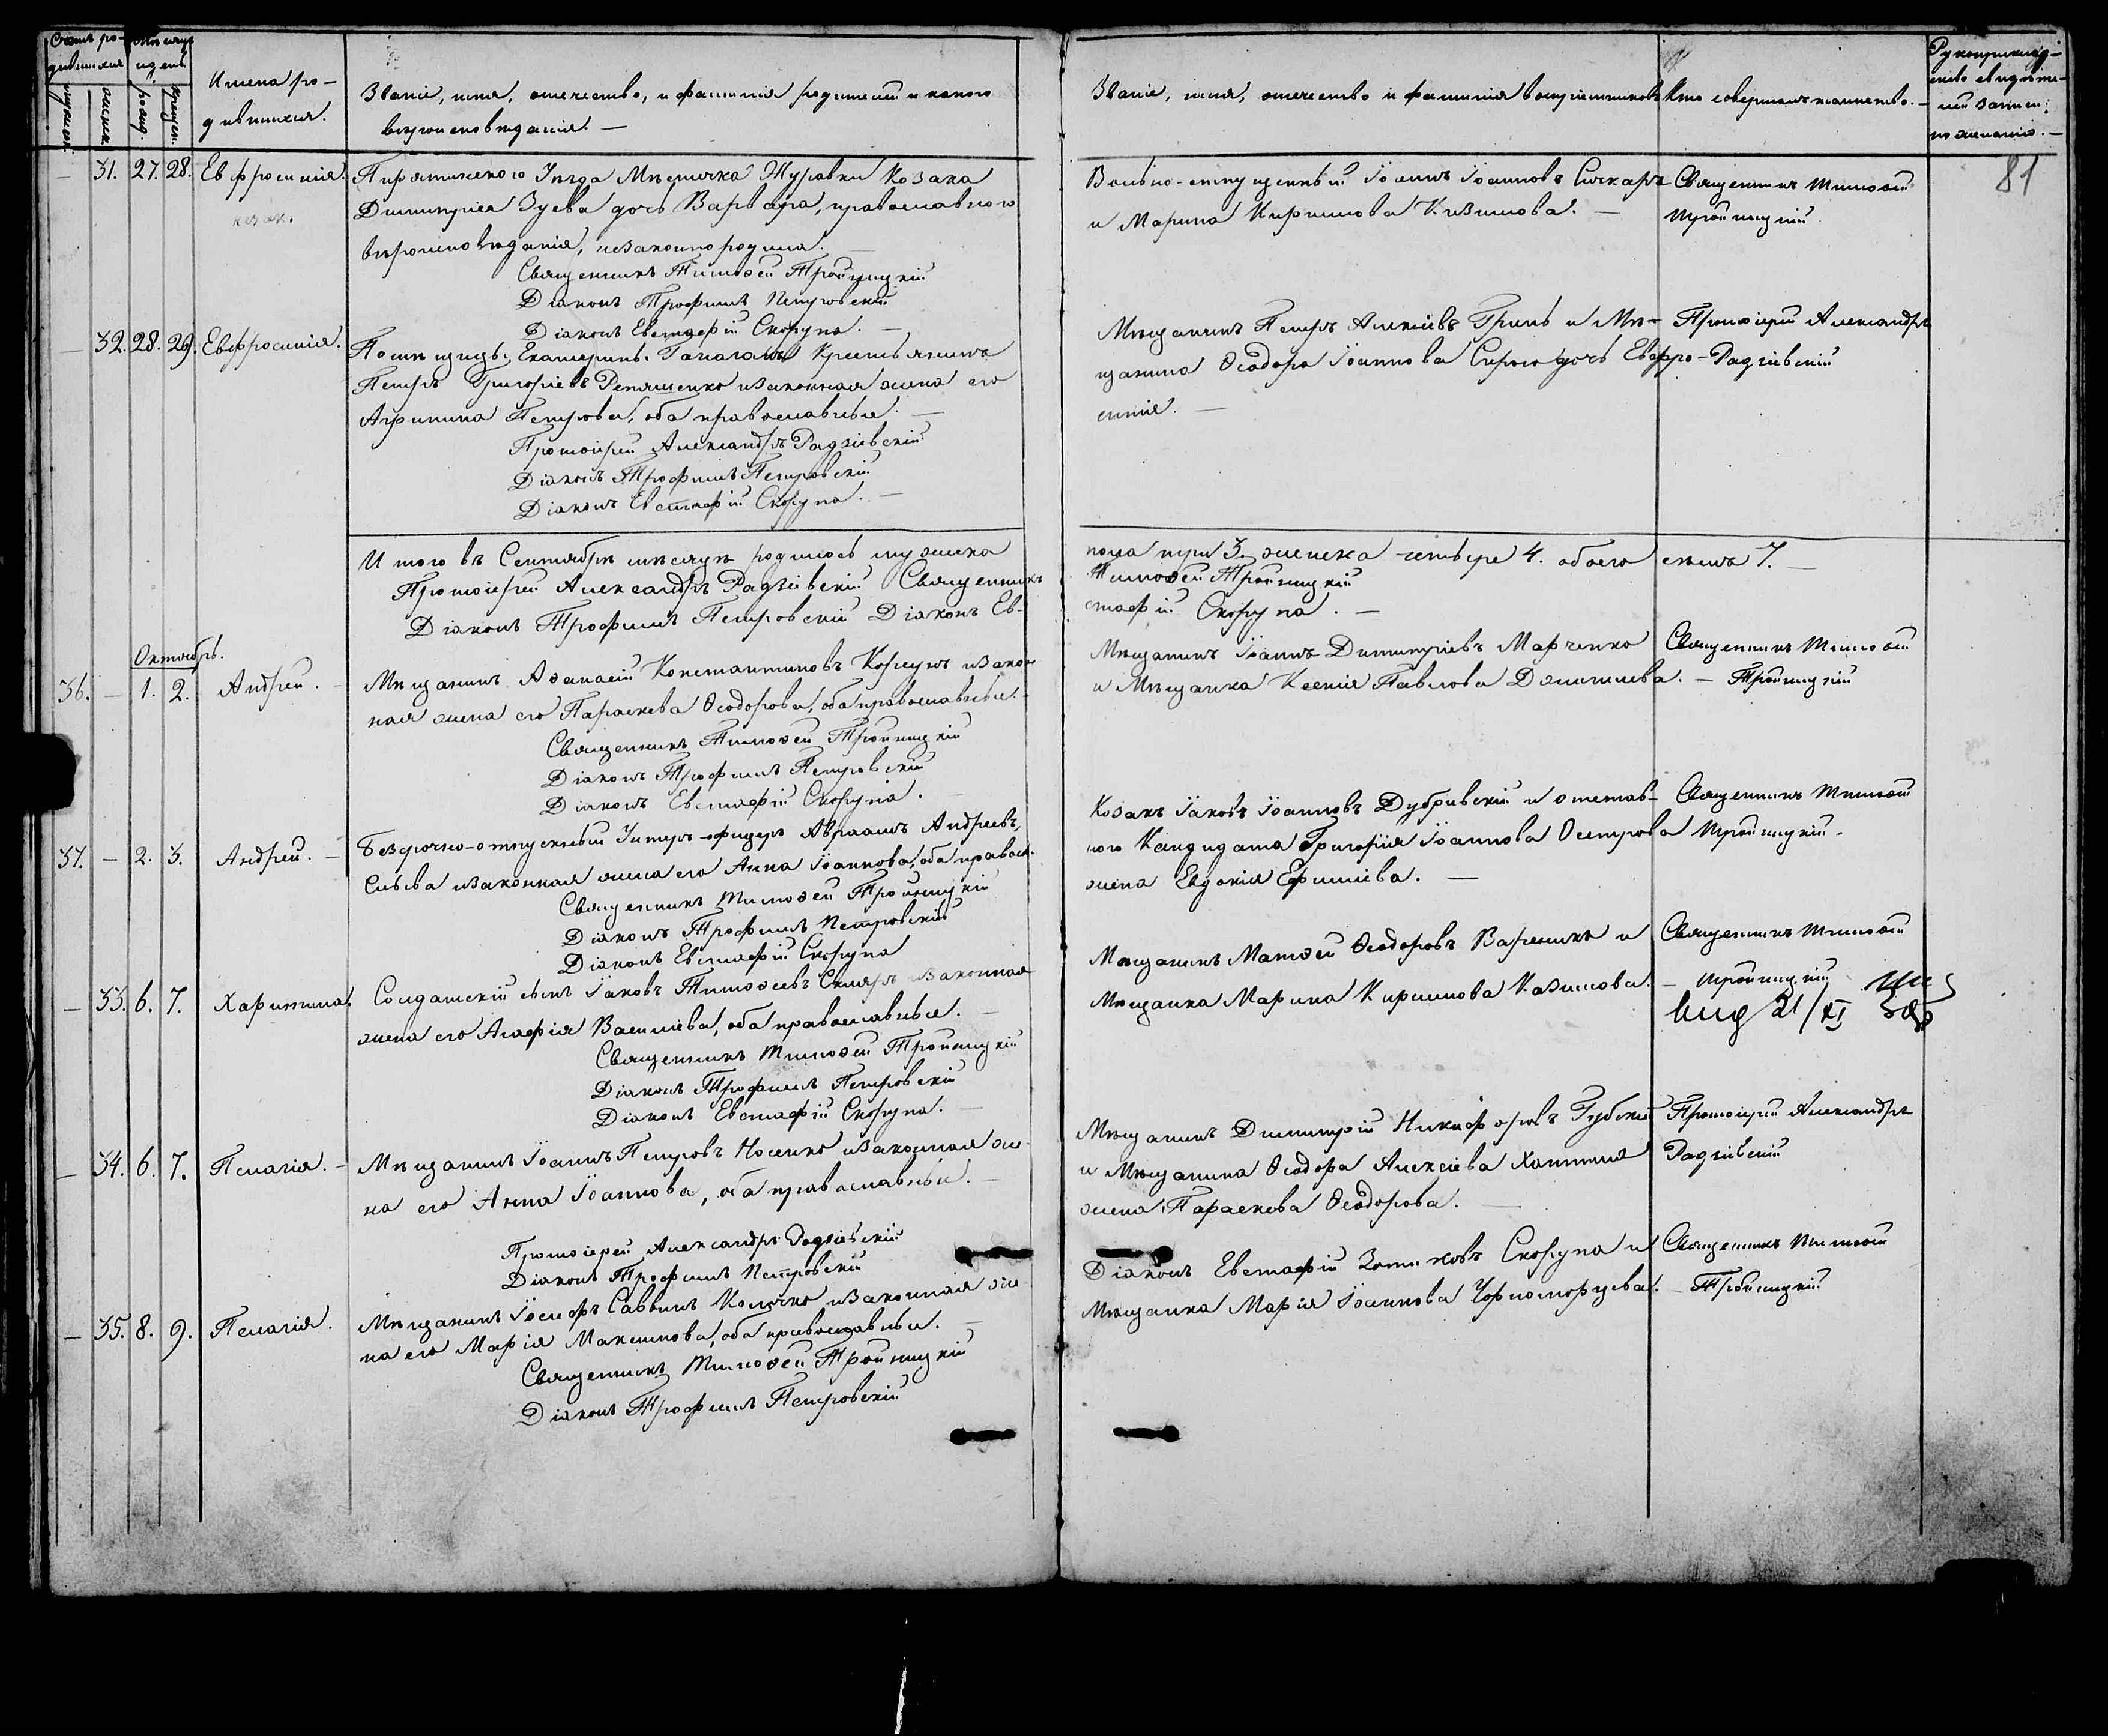 Счетъ ро-
дившихся
Мѣсяцъ
и день
мужеска.
женска.
рожд.
крещен.
Имена ро-
дившихся.
Званіе, имя, отчество, и фамилія родителей и какого
вѣроисповѣданія. —
Званіе, имя, отчество и фамилія воспріемниковъ
Кто совершалъ таинство. —
Рукоприклад-
ство свидѣте-
лей записи
по желанію. —
81
— 31. 27. 28. Евфросинія.
козач.
Пирятинскаго Уѣзда Мѣстечка Журавки Козака
Димитрія Зуева дочь Варвара, православнаго
вѣроисповѣданія, незаконно родила. —
Священникъ Тимоѳей Тройницкій
Діаконъ Трофимъ Петровскій
Діаконъ Евстафій Скорупа. —
Вольно-отпущенный Іоаннъ Іоанновъ
и Марина Кирилова Казимова. —
Священникъ Тимоѳей
Тройницкій
— 32. 28. 29. Евфросинія.
Помѣщицы Екатерины Крестьянинъ
Петръ Григоріевъ Репяшенко и законная жена его
Агрипина Петрова, оба православные. —
Протоіерей Александръ Радзіевскій
Діаконъ Трофимъ Петровскій
Діаконъ Евстафій Скорупа. —
Мѣщанинъ Петръ Алексіевъ Гринь и Мѣ-
щанина Ѳеодора Іоаннова дочь Евфро-
синія. —
Протоіерей Александръ
Радзіевскій
Итого въ Сентябрѣ мѣсяцѣ родилось мужеска
пола три 3. женска четыре 4. обоего семь 7. —
Протоіерей Александръ Радзіевскій Священникъ
Тимоѳей Тройницкій
Діаконъ Трофимъ Петровскій Діаконъ Ев-
стафій Скорупа. —
Октябрь.
36. — 1. 2. Андрей. —
Мѣщанинъ Аѳанасій Константиновъ Коржъ и закон-
ная жена его Параскева Ѳеодорова, оба православные. —
Священникъ Тимоѳей Тройницкій
Діаконъ Трофимъ Петровскій
Діаконъ Евстафій Скорупа. —
Мѣщанинъ Іоаннъ Димитріевъ Марченко
и Мѣщанка Ксенія Павлова —
Священникъ Тимоѳей
Тройницкій
37. — 2. 3. Андрей. —
Безсрочно-отпускный Унтеръ-офицеръ Авраамъ Андреевъ
и законная жена его Анна Іоаннова, оба правосл.
Священникъ Тимоѳей Тройницкій
Діаконъ Трофимъ Петровскій
Діаконъ Евстафій Скорупа
Козакъ Іаковъ Іоанновъ Дубривскій и отстав-
ного Кандидата Григорія Іоаннова Осетрова
жена Евдокія Ефимова. —
Священникъ Тимоѳей
Тройницкій.
— 33. 6. 7. Харитина.
Солдатскій сынъ Іаковъ Тимоѳеевъ Скляръ и законная
жена его Агафія Василіева, оба православные. —
Священникъ Тимоѳей Тройницкій
Діаконъ Трофимъ Петровскій
Діаконъ Евстафій Скорупа. —
Мѣщанинъ Матѳей Ѳеодоровъ Вареникъ и
Мѣщанка Марина Кирилова Казимова. —
Священникъ Тимоѳей
Тройницкій
21/XI
— 34. 6. 7. Пелагія. —
Мѣщанинъ Іоаннъ Петровъ Носенко и законная же-
на его Анна Іоаннова, оба православные. —
Протоіерей Александръ Радзіевскій
Діаконъ Трофимъ Петровскій
Мѣщанинъ Димитрій Никифоровъ Губскій
и Мѣщанина Ѳеодора Алексіева
жена Параскева Ѳеодорова. —
Протоіерей Александръ
Радзіевскій
— 35. 8. 9. Пелагія.
Мѣщанинъ Іосифъ Саввинъ и законная же-
на его Марія Максимова, оба православные. —
Священникъ Тимоѳей Тройницкій
Діаконъ Трофимъ Петровскій
Діаконъ Евстафій Скорупа и
Мѣщанка Марія Іоаннова Чорноморцева. —
Священникъ Тимоѳей
Тройницкій